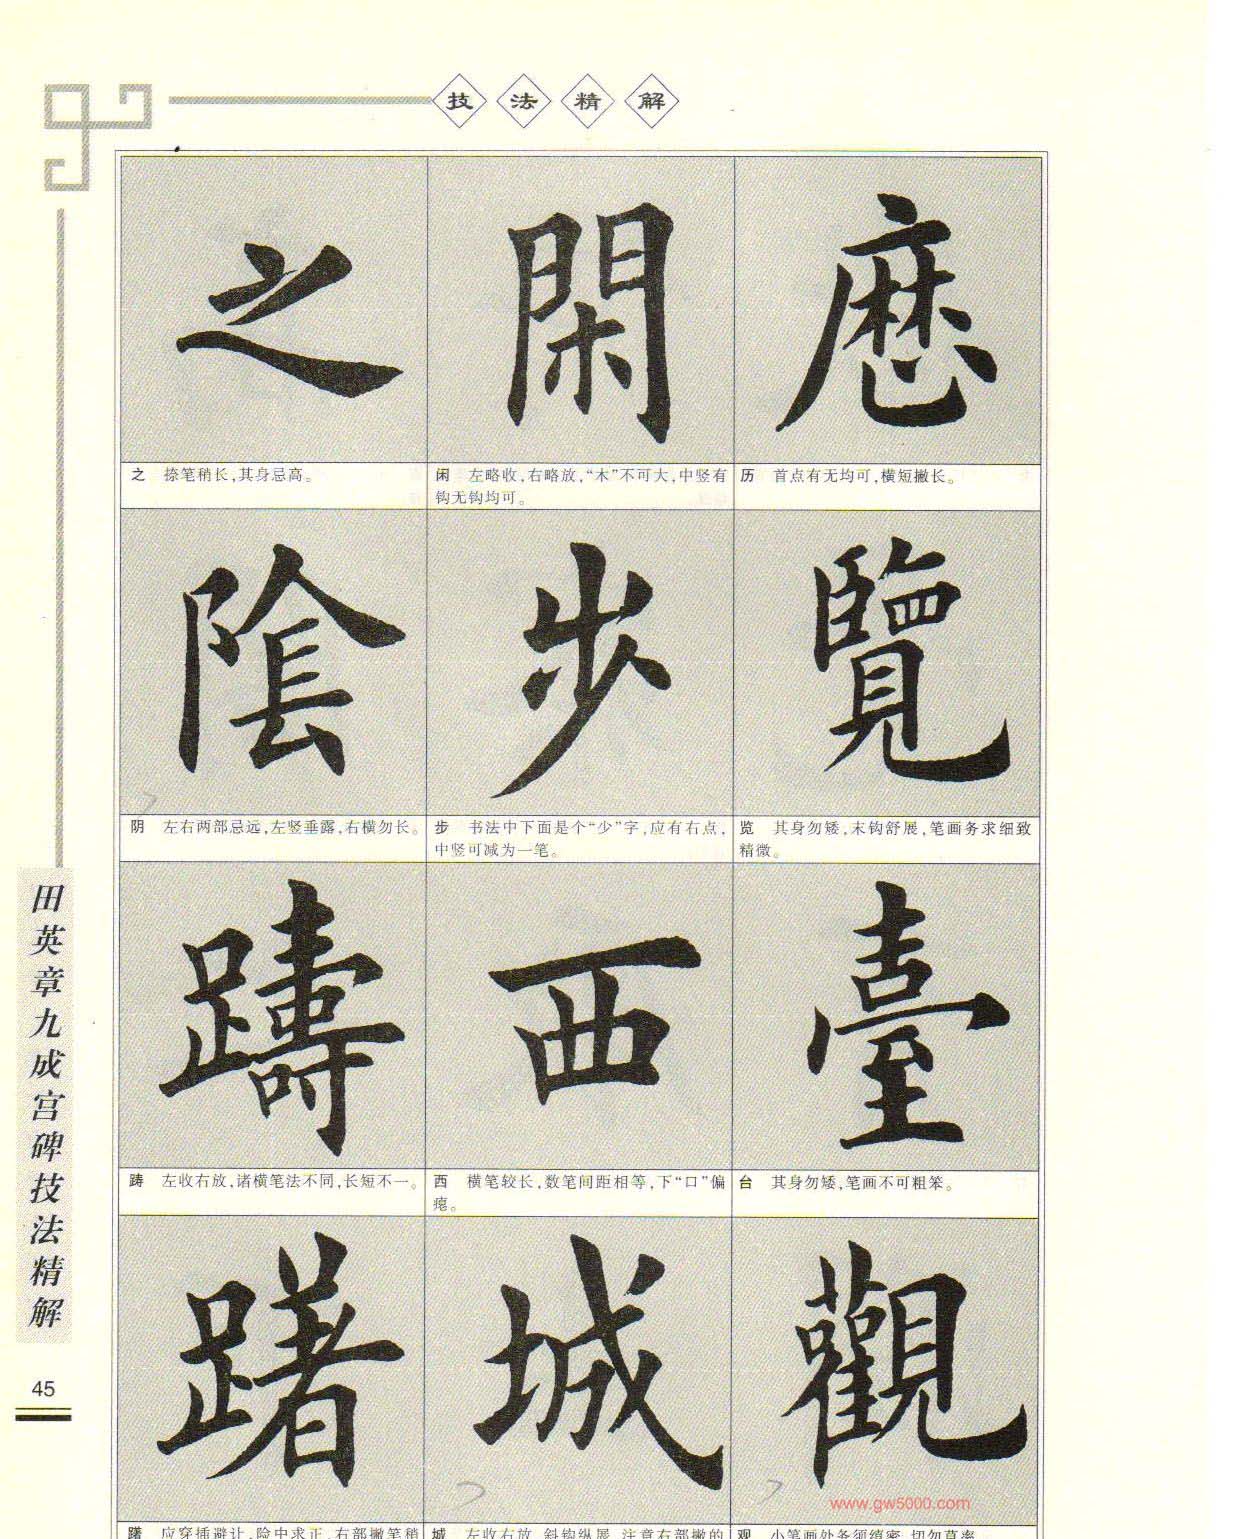 技法精解
之 閑 歴
之 捺笔稍长,其身忌高。
闲 左略收,右略放,“木”不可大,中竖有
钩无钩均可。
历 首点有无均可,横短撇长。
陰 步 覽
阴 左右两部忌远,左竖垂露,右横勿长。
步 书法中下面是个“少”字,应有右点,
中竖可减为一笔。
览 其身勿矮,末钩舒展,笔画务求细致
精微。
躊 西 臺
踌 左收右放,诸横笔法不同,长短不一。
西 横笔较长,数笔间距相等,下“口”偏
窄。
台 其身勿矮,笔画不可粗笨。
躇 城 觀
www.gw5000.com
躇 应穿插避让,险中求正,右部撇笔稍
城 左收右放,斜钩纵展,注意右部撇的
观 小笔画处务须缜密,切勿草率。
田英章九成宫碑技法精解
45